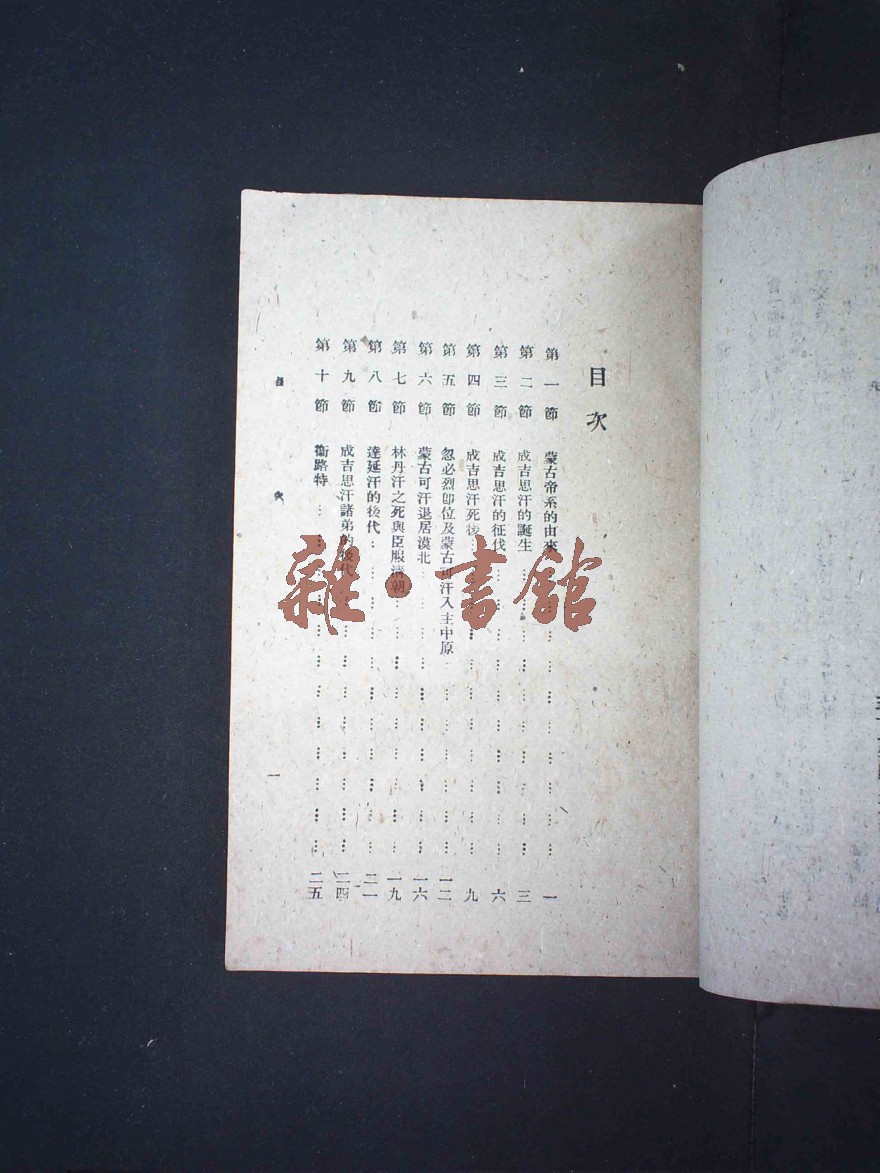 目次
第一節 蒙古帝系的由來 一
第二節 成吉思汗的誕生 三
第三節 成吉思汗的征伐 六
第四節 成吉思汗死後 九
第五節 忽必烈卽位及蒙古可汗入主中原 一二
第六節 蒙古可汗退居漠北 一六
第七節 林丹汗之死與臣服淸朝 一九
第八節 達延汗的後代 二一
第九節 成吉思汗諸弟的後代 二四
第十節 衞路特 二五
目次
一
雜·書館